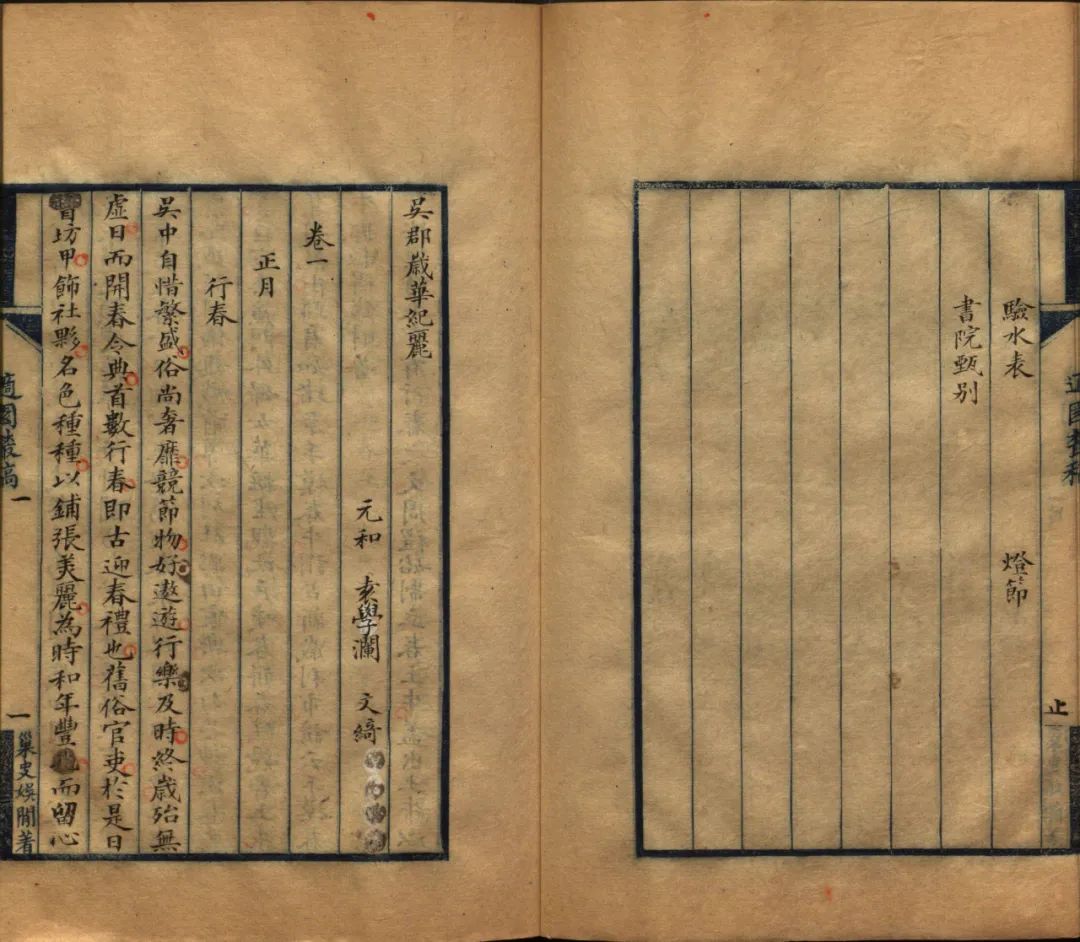 驗水表 燈節
書院甄别
止
吳郡歳華紀麗
元和 袁學瀾 文綺
卷一
正月
行春
吳中自惜繁盛俗尚奢靡競節物好遨遊行樂及時終歳殆無
虛日而開春令典首數行春即古迎春禮也舊俗官吏於是日
坊甲飾社夥名色種種以鋪張美麗為時和年豐而留心
適園叢稿一
一 巢史娛閒著